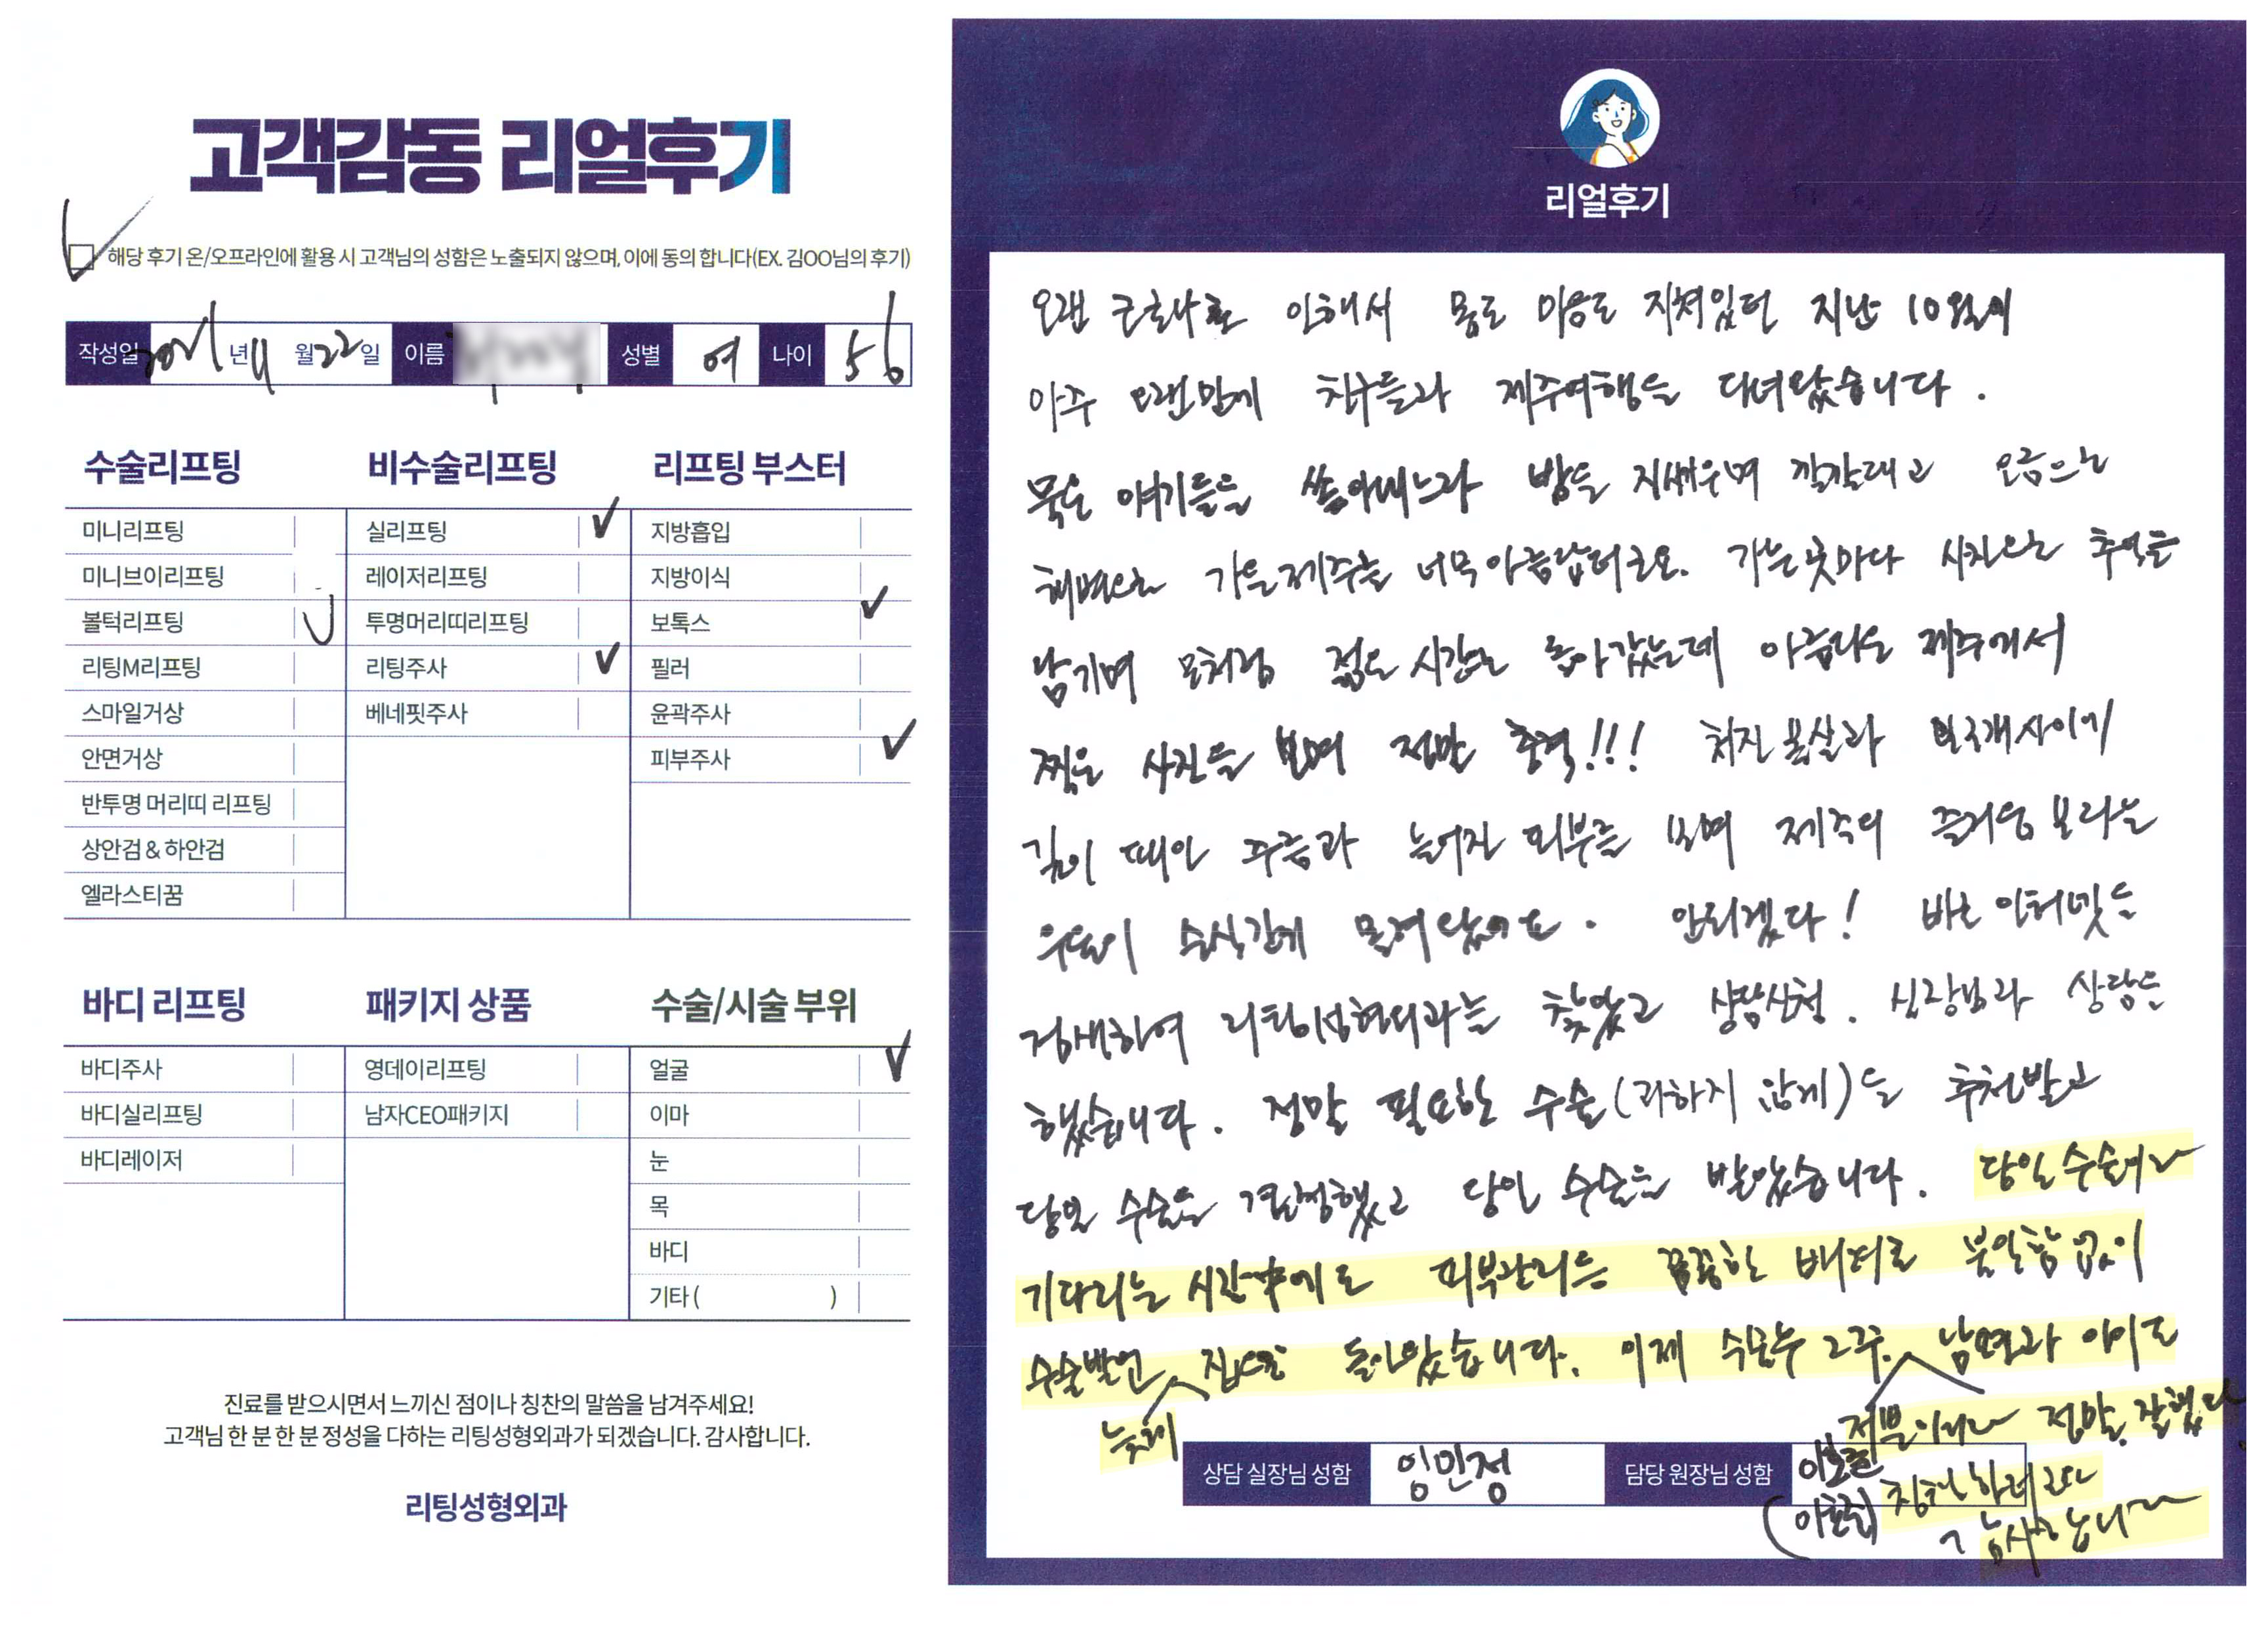 고객감동 리얼후기
해당 후기 온/오프라인에 활용 시 고객님의 성함은 노출되지 않으며, 이에 동의 합니다(EX. 김OO님의 후기)
작성일 2021년 11월 22일 이름 성별 여 나이 56
수술리프팅
미니리프팅
미니브이리프팅
볼턱리프팅
리팅M리프팅
스마일거상
안면거상
반투명 머리띠 리프팅
상안검 & 하안검
엘라스티꿈
비수술리프팅
실리프팅 ✓
레이저리프팅
투명머리띠리프팅
리팅주사 ✓
베네핏주사
리프팅 부스터
지방흡입
지방이식
보톡스 ✓
필러
윤곽주사
피부주사 ✓
바디 리프팅
바디주사
바디실리프팅
바디레이저
패키지 상품
영데이리프팅
남자CEO패키지
수술/시술 부위
얼굴 ✓
이마
눈
목
바디
기타 ( )
진료를 받으시면서 느끼신 점이나 칭찬의 말씀을 남겨주세요!
고객님 한 분 한 분 정성을 다하는 리팅성형외과가 되겠습니다. 감사합니다.
리팅성형외과
리얼후기
오랜 코로나로 인해서 몸도 마음도 지쳐있던 지난 10월에
아주 오랜만에 친구들과 제주여행을 다녀왔습니다.
묵은 얘기들을 쏟아내느라 밤을 지새우며 깔깔대고
가을제주는 너무 아름답더군요. 가는곳마다 사진으로 추억을
남기며 모처럼 젊은 시간으로 돌아갔는데 아름다운 제주에서
찍은 사진을 보며 정말 충격!!! 처진 볼살과 보조개사이에
깊이 패인 주름과 늘어진 피부를 보며 제주의 즐거움 보다는
우울이 순식간에 몰려왔어요. 안되겠다! 바로 인터넷을
검색하여 리팅성형외과를 찾았고 상담신청. 실장님과 상담을
했습니다. 정말 필요한 수술(과하지 않게)을 추천받고
당일 수술을 결정했고 당일 수술을 받았습니다. 당일 수술이라
기다리는 시간中에도 피부관리등 꼼꼼한 배려로 불안함 없이
수술받고 집으로 돌아왔습니다. 이제 수술후 2주. 남편과 아이도
정말 잘했다
칭찬하네요~
감사합니다~
상담 실장님 성함 임민정 담당 원장님 성함